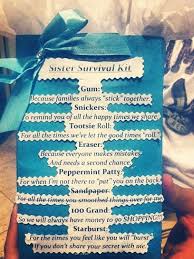 Sister Survival Kit
Gum:
Because families always "stick" together.
Snickers:
To remind you of all the happy times we share.
Tootsie Roll:
For all the times we've let the good times "roll".
Eraser:
Because everyone makes mistakes
And needs a second chance.
Peppermint Patty:
For when I'm not there to "pat" you on the back.
Sandpaper
For all the times you smoothed things over for me.
100 Grand:
So we will always have money to go SHOPPING!
Starburst:
For the times you feel like you will "burst"
If you don't share your secret with me.